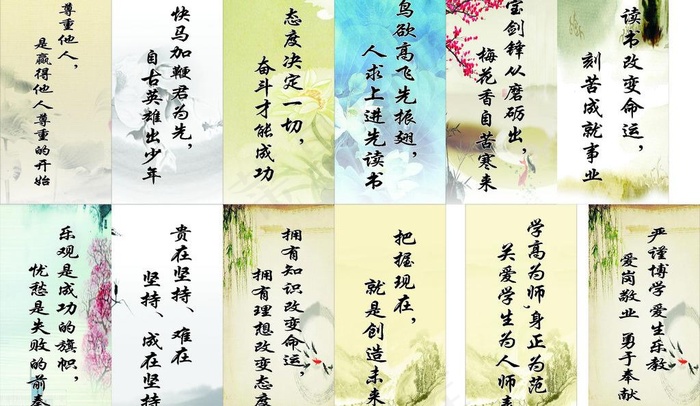 尊重他人，
是赢得他人尊重的开始
快马加鞭君为先，
自古英雄出少年
态度决定一切，
奋斗才能成功
鸟欲高飞先振翅，
人求上进先读书
宝剑锋从磨砺出，
梅花香自苦寒来
读书改变命运，
刻苦成就事业
乐观是成功的旗帜，
忧愁是失败的前奏
贵在坚持、难在
坚持、成在坚持
拥有知识改变命运，
拥有理想改变态度
把握现在，
就是创造未来
学高为师，身正为范
关爱学生为人师表
严谨博学 爱生乐教
爱岗敬业 勇于奉献